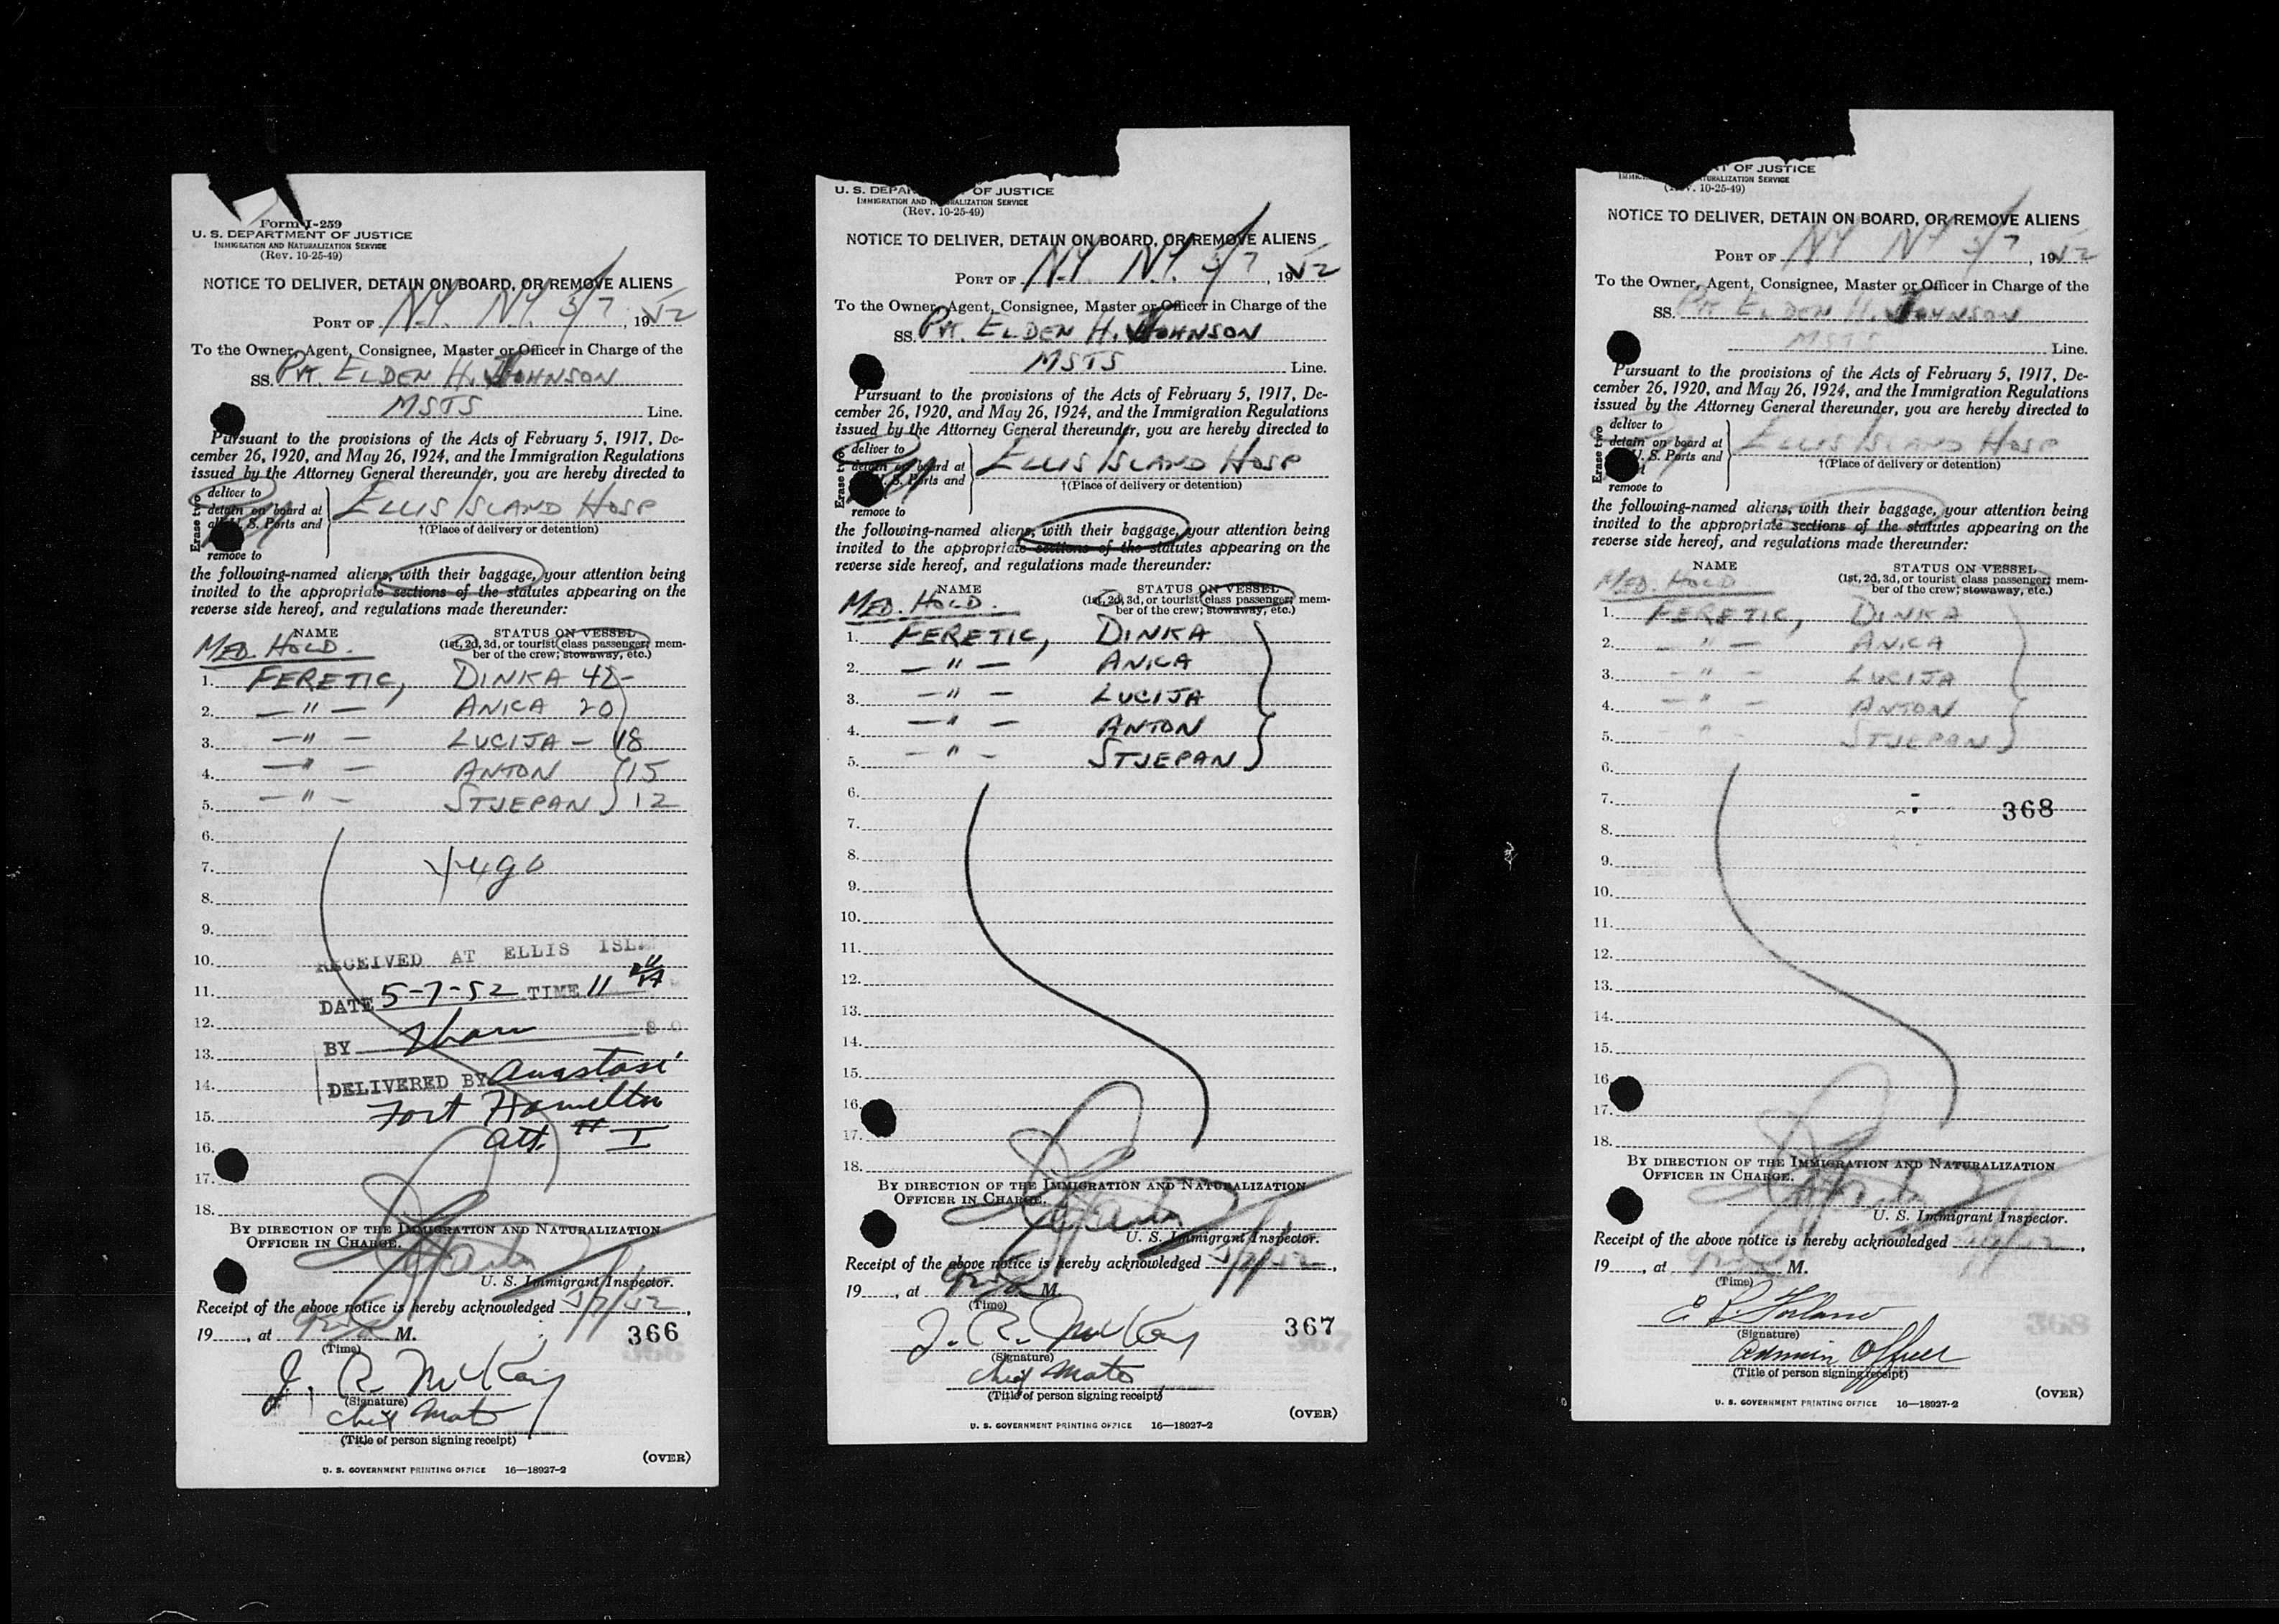 Form I-259
U. S. DEPARTMENT OF JUSTICE
IMMIGRATION AND NATURALIZATION SERVICE
(Rev. 10-25-49)
NOTICE TO DELIVER, DETAIN ON BOARD, OR REMOVE ALIENS
PORT OF N.Y. N.Y. 5/7, 1952
To the Owner, Agent, Consignee, Master or Officer in Charge of the
SS. Pvt. ELDEN H. JOHNSON
MSTS Line.
Pursuant to the provisions of the Acts of February 5, 1917, De-
cember 26, 1920, and May 26, 1924, and the Immigration Regulations
issued by the Attorney General thereunder, you are hereby directed to
Erase two
deliver to
detain on board at
all U. S. Ports and
remove to
ELLIS ISLAND HOSP
†(Place of delivery or detention)
the following-named aliens, with their baggage, your attention being
invited to the appropriate sections of the statutes appearing on the
reverse side hereof, and regulations made thereunder:
NAME STATUS ON VESSEL
MED. HOLD. (1st, 2d, 3d, or tourist class passenger; mem-
ber of the crew; stowaway, etc.)
1. FERETIC, DINKA 42-
2. — " — ANICA 20
3. — " — LUCIJA - 18
4. — " — ANTON 15
5. — " — STJEPAN 12
6.
7. Yugo
8.
9.
10. RECEIVED AT ELLIS ISL.
11. DATE 5-7-52 TIME 11
12.
BY
13.
14. DELIVERED BY Anastasi
15. Fort Hamilton
16. Att. # I
17.
18.
BY DIRECTION OF THE IMMIGRATION AND NATURALIZATION
OFFICER IN CHARGE.
U. S. Immigrant Inspector.
Receipt of the above notice is hereby acknowledged 5/7/52,
19, at M. 366
(Time)
J. R. McKay
(Signature)
Chief Mate
(Title of person signing receipt)
(OVER)
U. S. GOVERNMENT PRINTING OFFICE 16—18927-2
U. S. DEPAR OF JUSTICE
IMMIGRATION AND NATURALIZATION SERVICE
(Rev. 10-25-49)
NOTICE TO DELIVER, DETAIN ON BOARD, OR REMOVE ALIENS
PORT OF N.Y. N.Y. 5/7, 1952
To the Owner, Agent, Consignee, Master or Officer in Charge of the
SS. Pvt. ELDEN H. JOHNSON
MSTS Line.
Pursuant to the provisions of the Acts of February 5, 1917, De-
cember 26, 1920, and May 26, 1924, and the Immigration Regulations
issued by the Attorney General thereunder, you are hereby directed to
Erase two
deliver to
detain on board at
S. Ports and
remove to
ELLIS ISLAND HOSP
†(Place of delivery or detention)
the following-named aliens, with their baggage, your attention being
invited to the appropriate sections of the statutes appearing on the
reverse side hereof, and regulations made thereunder:
NAME STATUS ON VESSEL
MED. HOLD. (1st, 2d, 3d, or tourist class passenger; mem-
ber of the crew; stowaway, etc.)
1. FERETIC, DINKA
2. — " — ANICA
3. — " — LUCIJA
4. — " — ANTON
5. — " — STJEPAN
6.
7.
8.
9.
10.
11.
12.
13.
14.
15.
16.
17.
18.
BY DIRECTION OF THE IMMIGRATION AND NATURALIZATION
OFFICER IN CHARGE.
U. S. Immigrant Inspector.
Receipt of the above notice is hereby acknowledged 5/7/52,
19, at M.
(Time)
J. R. McKay 367
(Signature)
Chief Mate
(Title of person signing receipt)
(OVER)
U. S. GOVERNMENT PRINTING OFFICE 16—18927-2
T OF JUSTICE
NATURALIZATION SERVICE
10-25-49)
NOTICE TO DELIVER, DETAIN ON BOARD, OR REMOVE ALIENS
PORT OF NY NY 5/7, 1952
To the Owner, Agent, Consignee, Master or Officer in Charge of the
SS. Pvt. ELDEN H. JOHNSON
MSTS Line.
Pursuant to the provisions of the Acts of February 5, 1917, De-
cember 26, 1920, and May 26, 1924, and the Immigration Regulations
issued by the Attorney General thereunder, you are hereby directed to
Erase two
deliver to
detain on board at
U. S. Ports and
remove to
ELLIS ISLAND HOSP
†(Place of delivery or detention)
the following-named aliens, with their baggage, your attention being
invited to the appropriate sections of the statutes appearing on the
reverse side hereof, and regulations made thereunder:
NAME STATUS ON VESSEL
MED. HOLD (1st, 2d, 3d, or tourist class passenger; mem-
ber of the crew; stowaway, etc.)
1. FERETIC, DINKA
2. — " — ANICA
3. — " — LUCIJA
4. — " — ANTON
5. — " — STJEPAN
6.
7. 368
8.
9.
10.
11.
12.
13.
14.
15.
16.
17.
18.
BY DIRECTION OF THE IMMIGRATION AND NATURALIZATION
OFFICER IN CHARGE.
U. S. Immigrant Inspector.
Receipt of the above notice is hereby acknowledged 5/7/52,
19, at M.
(Time)
(Signature) 368
Admin Officer
(Title of person signing receipt)
(OVER)
U. S. GOVERNMENT PRINTING OFFICE 16—18927-2